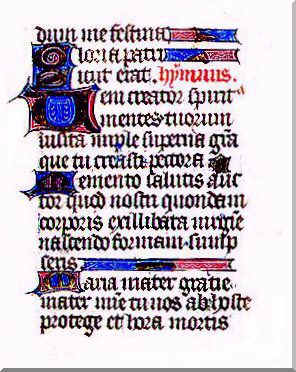 dum me festina
Gloria patri
Sicut erat. hymnus.
Veni creator spirit
mentes tuorum
visita imple superna gr̄a
que tu creasti pectora
Memento salutis auc
tor quod nostri quondam
corporis ex illibata virgīe
nascendo formam sump
seris
Maria mater gratie
mater mīe tu nos ab hoste
protege et hora mortis